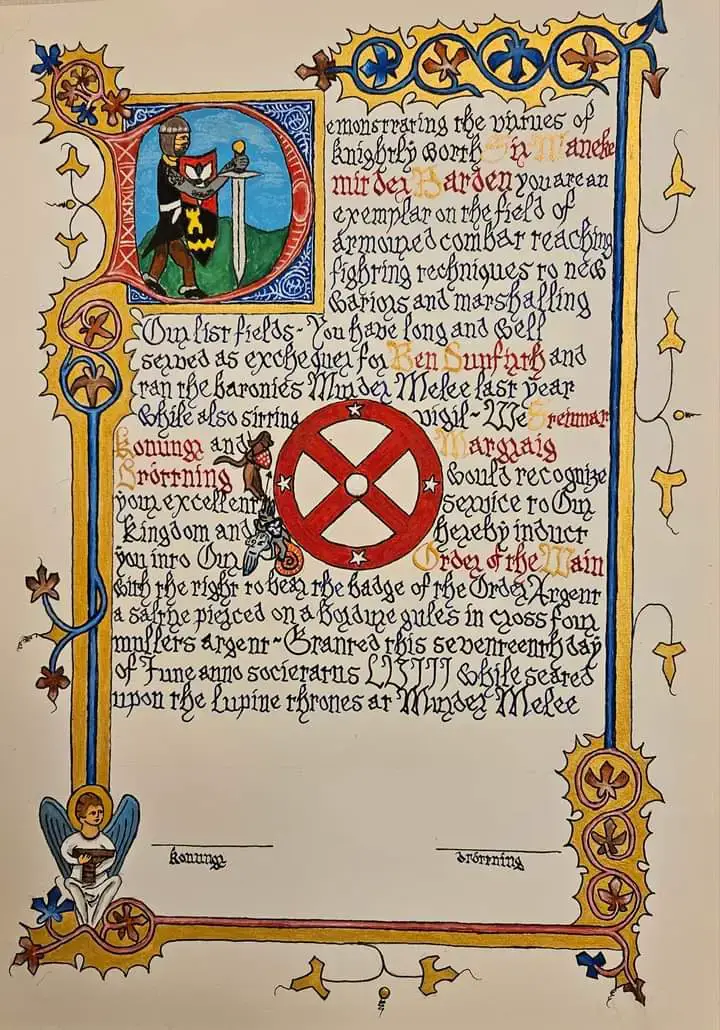 Demonstrating the virtues of
knightly worth Sir Maneke
mit der Barden you are an
exemplar on the field of
armoured combat teaching
fighting techniques to new
wariors and marshalling
Our list fields ~ You have long and well
served as exchequer for Ben Dunfirth and
ran the baronies Murder Melee last year
while also sitting vigil ~ We Steinnar
Konungr and
Dróttning would recognize
your excellent service to Our
Kingdom and hereby induct
you into Our Order of the Wain
with the right to bear the badge of the Order Argent
a saltire pierced on a bordure gules in cross four
mullets argent ~ Granted this seventeenth day
of June anno societatus LVIII while seated
upon the Lupine thrones at Murder Melee
Konungr dróttning